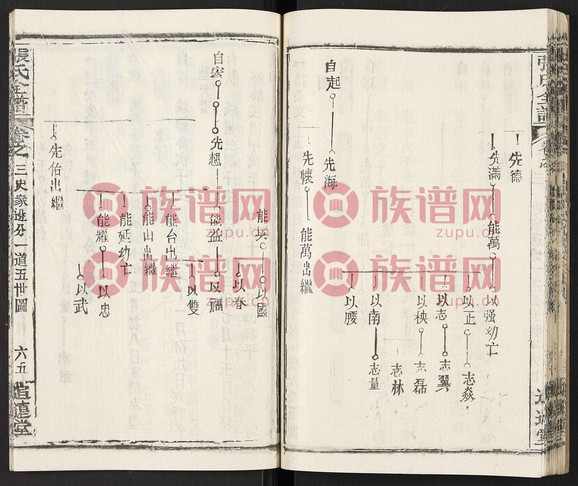 先德
先滿
能萬
以强幼亡
以正
志焱
以志
志翼
以秧
志磊
志林
以南
志量
以腰
自起
先海
先懷
能萬出繼
自宏
先想
能英
以國
能益
以春
以福
以雙
能台出繼
能山出繼
能延幼亡
能耀
以忠
以武
先佁出繼
張氏全譜
卷之
三史家遊分一道五世圖
六五
追遠堂
族谱网
zupu.cn
族谱网
zupu.cn
族谱网
zupu.cn
族谱网
zupu.cn